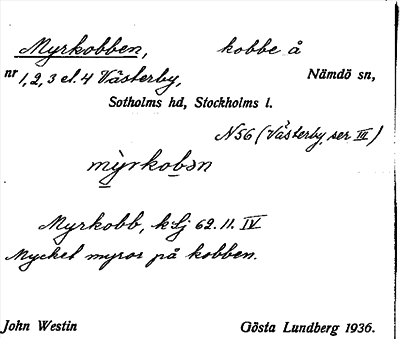 Myrkobben, kobbe å
nr 1, 2, 3 el. 4 Västerby, Nämdö sn,
Sotholms hd, Stockholms l.
N56 (Västerby ser III)
mỳrkobən
Myrkobb, k:lj 62. 11. IV
Mycket myror på kobben.
John Westin Gösta Lundberg 1936.